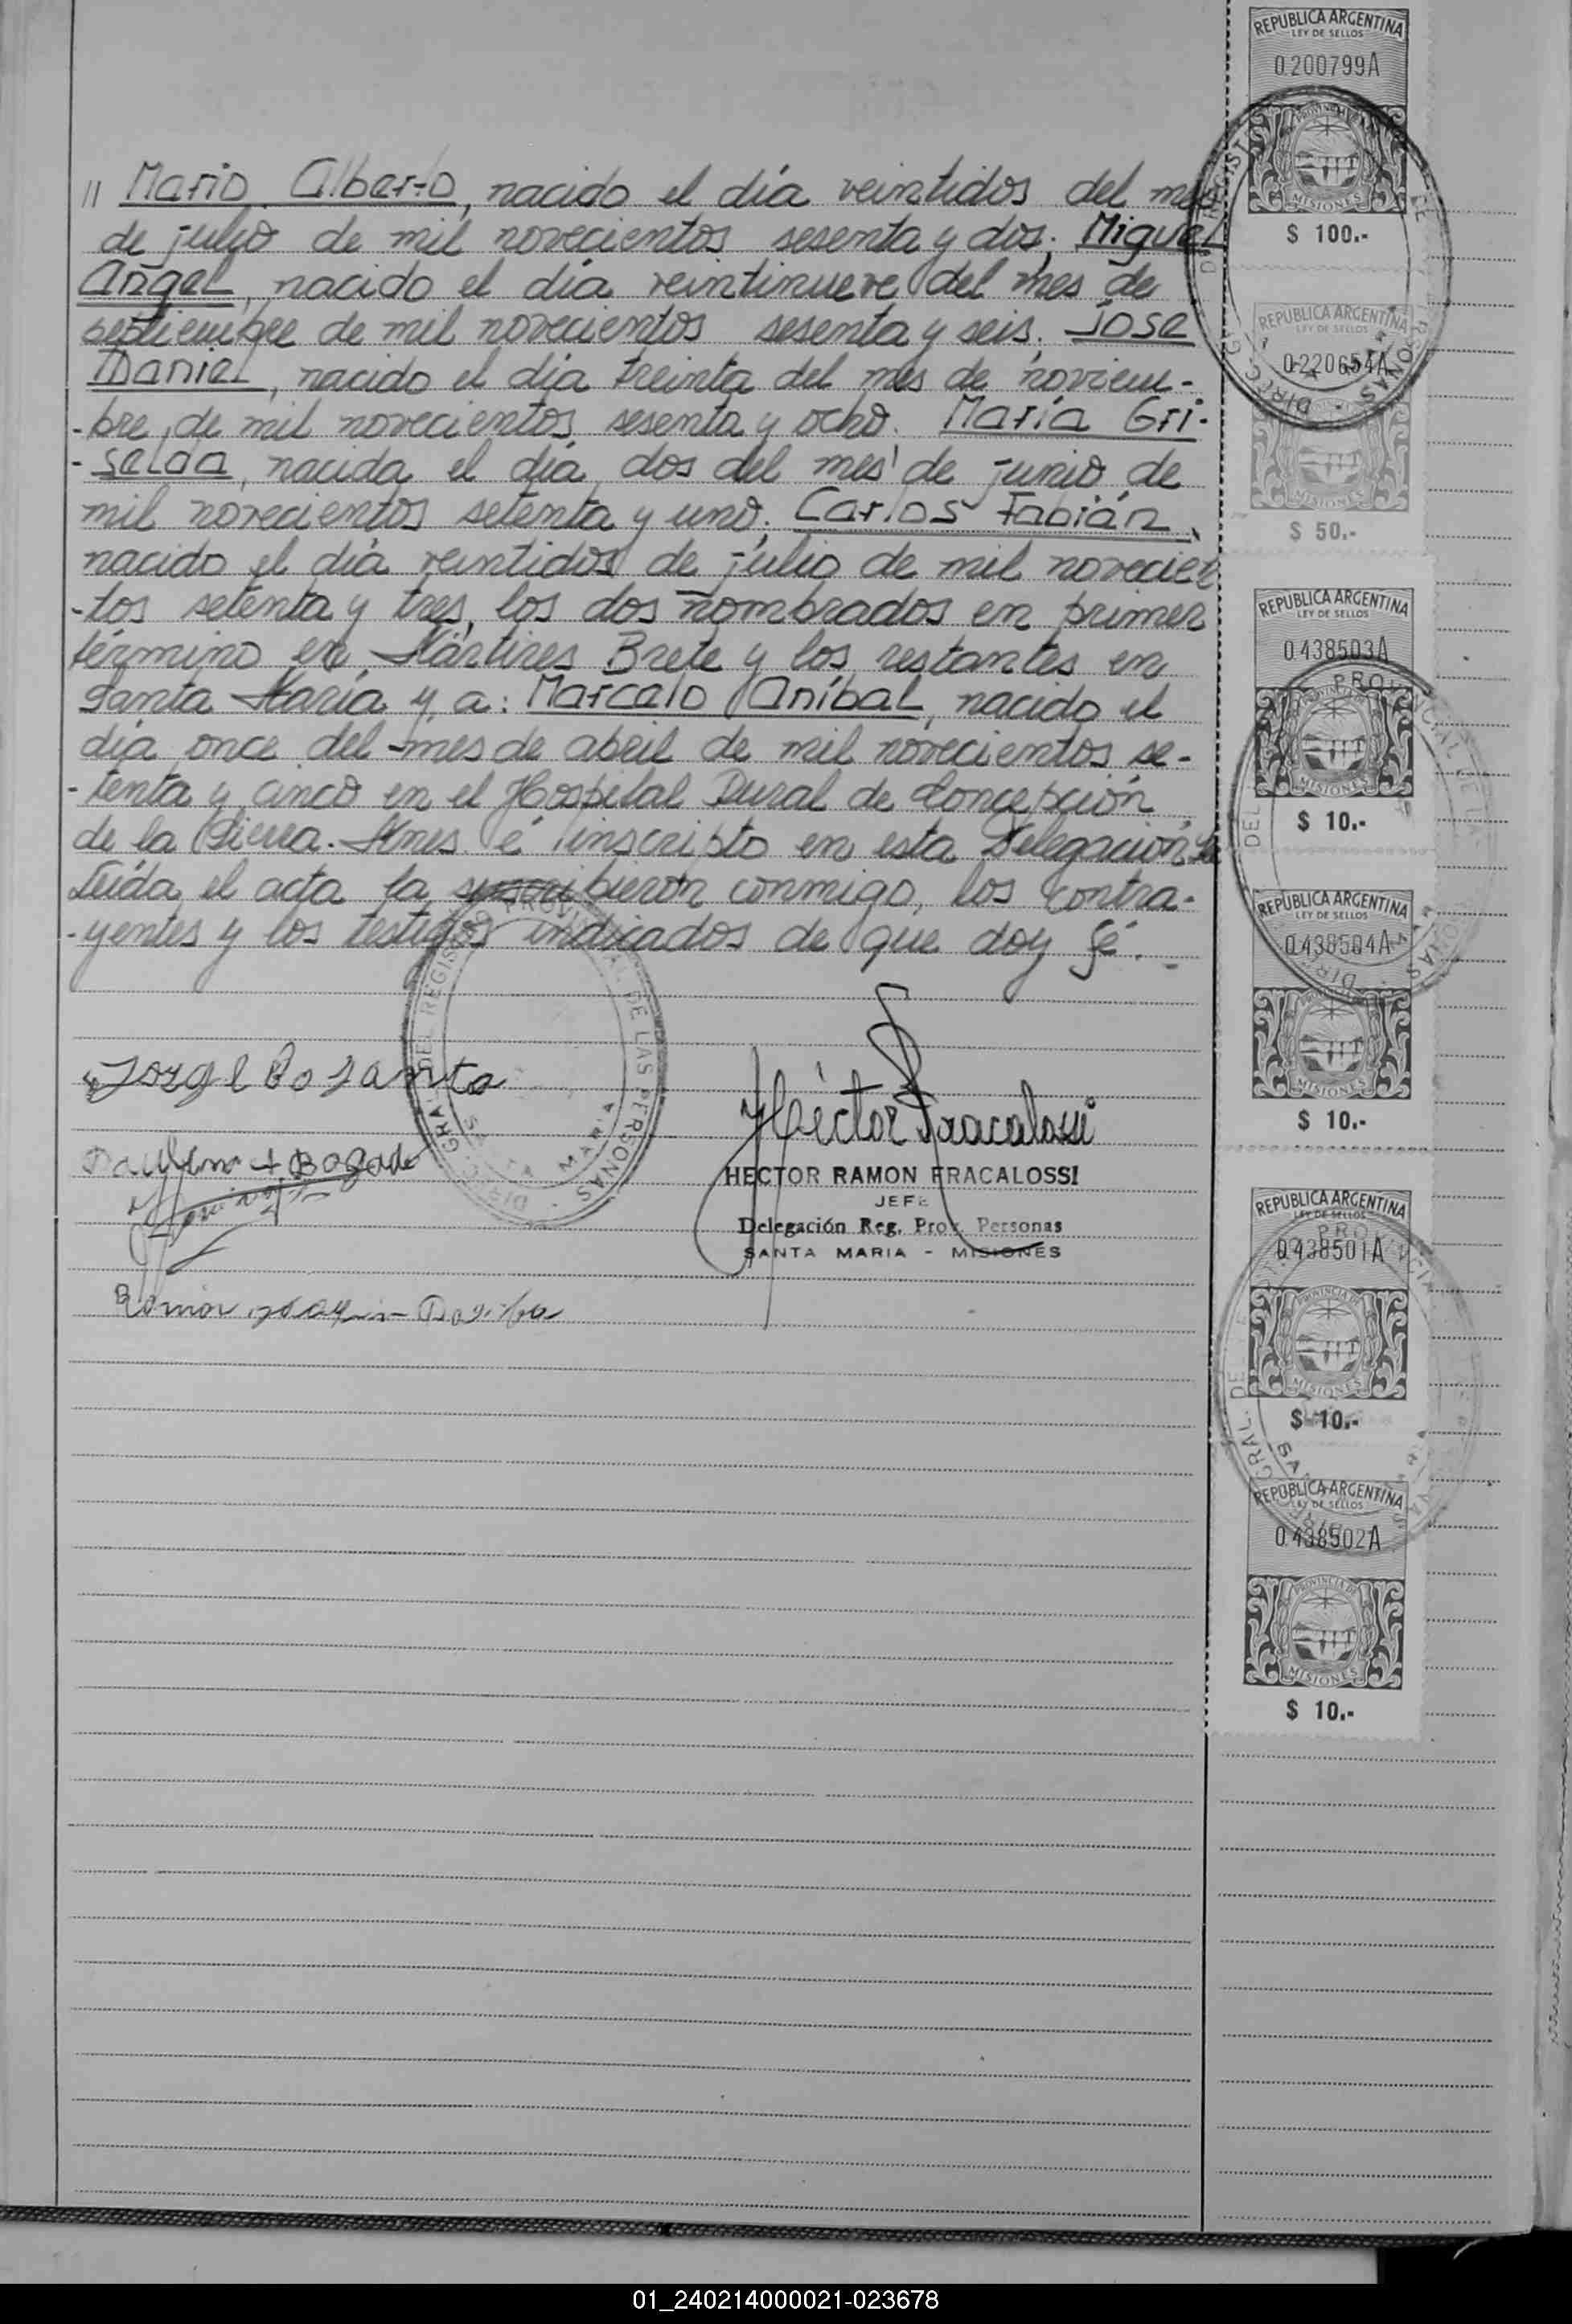 // Mario Alberto, nacido el día veintidos del mes
de julio de mil novecientos sesenta y dos. Miguel
Angel, nacido el día veintinueve del mes de
septiembre de mil novecientos sesenta y seis. Jose
Daniel, nacido el día treinta del mes de noviem-
-bre de mil novecientos sesenta y ocho. María Gri-
-selda, nacida el día dos del mes de junio de
mil novecientos setenta y uno. Carlos Fabián,
nacido el día veintidos de julio de mil novecien
-tos setenta y tres, los dos nombrados en primer
término en Mártires Brete y los restantes en
Santa María y a: Marcelo Aníbal, nacido el
día once del mes de abril de mil novecientos se-
-tenta y cinco en el Hospital Rural de Concepción
de la Sierra. Mnes. é inscripto en esta Delegación
Leída el acta la suscribieron conmigo, los contra-
-yentes y los testigos indicados de que doy fé.-
Jorge
Bogado
Ramon Joaquin
DIREC. GRAL. DEL REGISTRO PROVINCIAL DE LAS PERSONAS
SANTA MARIA
Héctor Fracalossi
HECTOR RAMON FRACALOSSI
JEFE
Delegación Reg. Prov. Personas
SANTA MARIA - MISIONES
REPUBLICA ARGENTINA
LEY DE SELLOS
0.200799A
PROVINCIA DE
MISIONES
$ 100.-
REPUBLICA ARGENTINA
LEY DE SELLOS
0.220654A
MISIONES
$ 50.-
REPUBLICA ARGENTINA
LEY DE SELLOS
0.438503A
PROVINCIA DE
MISIONES
$ 10.-
REPUBLICA ARGENTINA
LEY DE SELLOS
0.438504A
MISIONES
$ 10.-
REPUBLICA ARGENTINA
LEY DE SELLOS
0.438501A
PROVINCIA DE
MISIONES
$ 10.-
REPUBLICA ARGENTINA
LEY DE SELLOS
0.438502A
PROVINCIA DE
MISIONES
$ 10.-
01_240214000021-023678